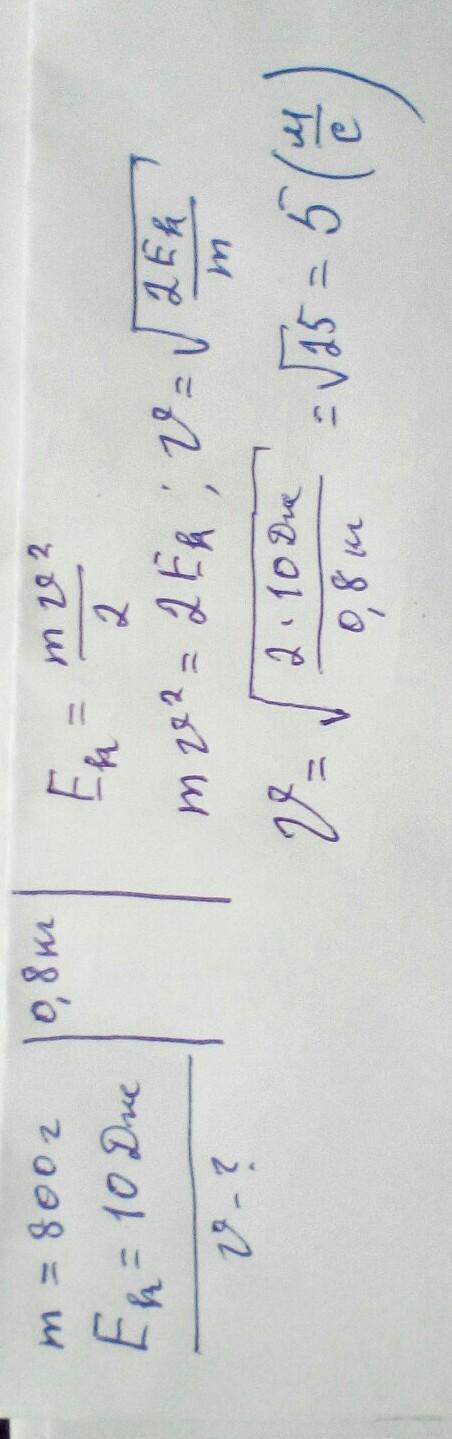 m = 800 г | 0,8 кг
Eк = 10 Дж
v - ?
Eк = mv²/2
mv² = 2Eк ; v = √(2Eк/m)
v = √(2·10 Дж/0,8 кг) = √25 = 5 (м/с)